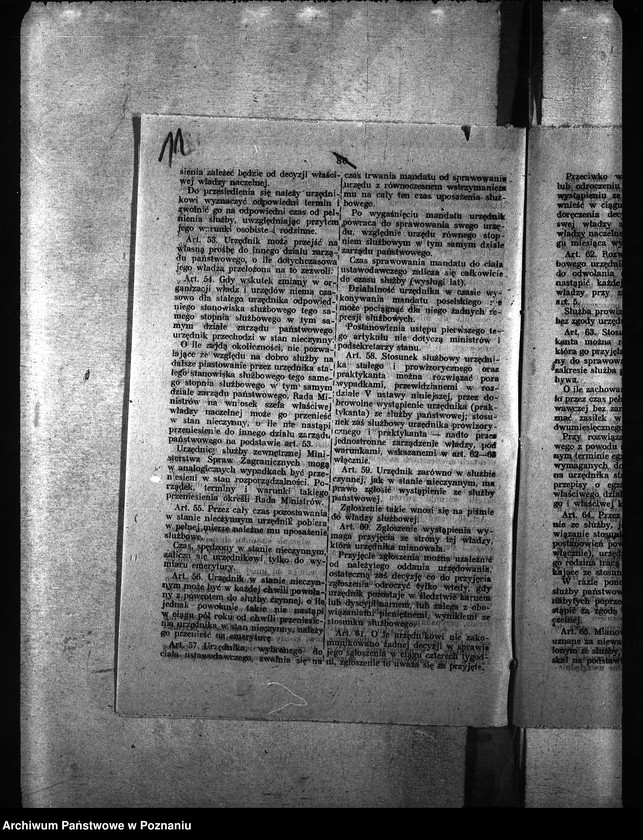 11
80
sienia zależeć będzie od decyzji właści-
wej władzy naczelnej.
Do przesiedlenia się należy urzędni-
kowi wyznaczyć odpowiedni termin i
zwolnić go na odpowiedni czas od peł-
nienia służby, uwzględniając przytem
jego warunki osobiste i rodzinne.
Art. 53. Urzędnik może przejść na
własną prośbę do innego działu zarzą-
du państwowego, o ile dotychczasowa
jego władza przełożona na to zezwoli.
Art. 54. Gdy wskutek zmiany w or-
ganizacji władz i urzędów niema cza-
sowo dla stałego urzędnika odpowied-
niego stanowiska służbowego tego sa-
mego stopnia służbowego w tym sa-
mym dziale zarządu państwowego
urzędnik przechodzi w stan nieczynny.
O ile zajdą okoliczności, nie pozwa-
lające ze względu na dobro służby na
dalsze piastowanie przez urzędnika sta-
łego stanowiska służbowego tego same-
go stopnia służbowego w tym samym
dziale zarządu państwowego, Rada Mi-
nistrów na wniosek szefa właściwej
władzy naczelnej może go przenieść
w stan nieczynny, o ile nie nastąpi
przeniesienie do innego działu zarządu
państwowego na podstawie art. 53.
Urzędnicy służby zewnętrznej Mini-
sterstwa Spraw Zagranicznych mogą
w analogicznych wypadkach być prze-
niesieni w stan rozporządzalności. Po-
rządek, terminy i warunki takiego
przeniesienia określi Rada Ministrów.
Art. 55. Przez cały czas pozostawania
w stanie nieczynnym urzędnik pobiera
w pełnej mierze należne mu uposażenie
służbowe.
Czas, spędzony w stanie nieczynnym,
zalicza się urzędnikowi tylko do wy-
miaru emerytury.
Art. 56. Urzędnik w stanie nieczyn-
nym może być w każdej chwili powoła-
ny z powrotem do służby czynnej, o ile
jednak powołanie takie nie nastąpi
w ciągu pół roku od chwili przeniesie-
nia urzędnika w stan nieczynny, należy
go przenieść na emeryturę.
Art. 57. Urzędnika, wybranego do
ciała ustawodawczego, zwalnia się na
czas trwania mandatu od sprawowania
urzędu z równoczesnem wstrzymaniem
mu na cały ten czas uposażenia służ-
bowego.
Po wygaśnięciu mandatu urzędnik
powraca do sprawowania swego urzę-
du, względnie urzędu równego stop-
niem służbowym w tym samym dziale
zarządu państwowego.
Czas sprawowania mandatu do ciała
ustawodawczego zalicza się całkowicie
do czasu służby (wysługi lat).
Działalność urzędnika w czasie wy-
konywania mandatu poselskiego nie
może pociągnąć dla niego żadnych re-
presji służbowych.
Postanowienia ustępu pierwszego te-
go artykułu nie dotyczą ministrów i
podsekretarzy stanu.
Art. 58. Stosunek służbowy urzędni-
ka stałego i prowizorycznego oraz
praktykanta można rozwiązać poza
wypadkami, przewidzianemi w roz-
dziale V ustawy niniejszej, przez do-
browolne wystąpienie urzędnika (prak-
tykanta) ze służby państwowej; stosu-
nek zaś służbowy urzędnika prowizory-
cznego i praktykanta — nadto przez
jednostronne zarządzenie władzy, pod
warunkami, wskazanemi w art. 62—65
włącznie.
Art. 59. Urzędnik zarówno w służbie
czynnej, jak w stanie nieczynnym, ma
prawo zgłosić wystąpienie ze służby
państwowej.
Zgłoszenie takie wnosi się na piśmie
do władzy służbowej.
Art. 60. Zgłoszenie wystąpienia wy-
maga przyjęcia ze strony tej władzy,
która urzędnika mianowała.
Przyjęcie zgłoszenia można uzależnić
od należytego oddania urzędowania,
ostateczną zaś decyzję co do przyjęcia
zgłoszenia odroczyć tylko wtedy, gdy
urzędnik pozostaje w śledztwie karnem
lub dyscyplinarnem, lub zalega z obo-
wiązaniami pieniężnemi, wynikłemi ze
stosunku służbowego.
Art. 61. O ile urzędnikowi nie zako-
munikowano żadnej decyzji w sprawie
jego zgłoszenia w ciągu czterech tygod-
ni, zgłoszenie to uważa się za przyjęte.
Przeciwko w
lub odroczeniu
wystąpienia ze
wnieść w ciągu
doręczenia decy
swej władzy s
władzy naczelne
gu miesiąca wy
Art. 62. Rozw
bowego urzędni
do odwołania
nastąpić każdej
władzy przy z
art. 5.
Służba prowiz
bez zgody urzęd
Art. 63. Stosu
kanta można r
która go przyjęła
ny do sprawowa
zakresie służba
bywa.
O ile zachowan
to przez czas peł
wawczej bez zar
mać zasiłek w
dwumiesięcznego
Przy rozwiąza
wego z powodu
nym terminie egz
wymaganych do
na urzędnika sta
przepisy o egz
właściwego dział
go i właściwej k
Art. 64. Przez
nie ze służby, j
wiązanie stosun
postanowień pow
włącznie), urzęd
go rodzina tracą
kające ze stosun
W razie pono
służby państwow
służbytych poprzed
stąpić za zgodą
czelnej.
Art. 65. Mianow
uznane za niewa
lonym ze służby,
skał na podstaw
Archiwum Państwowe w Poznaniu